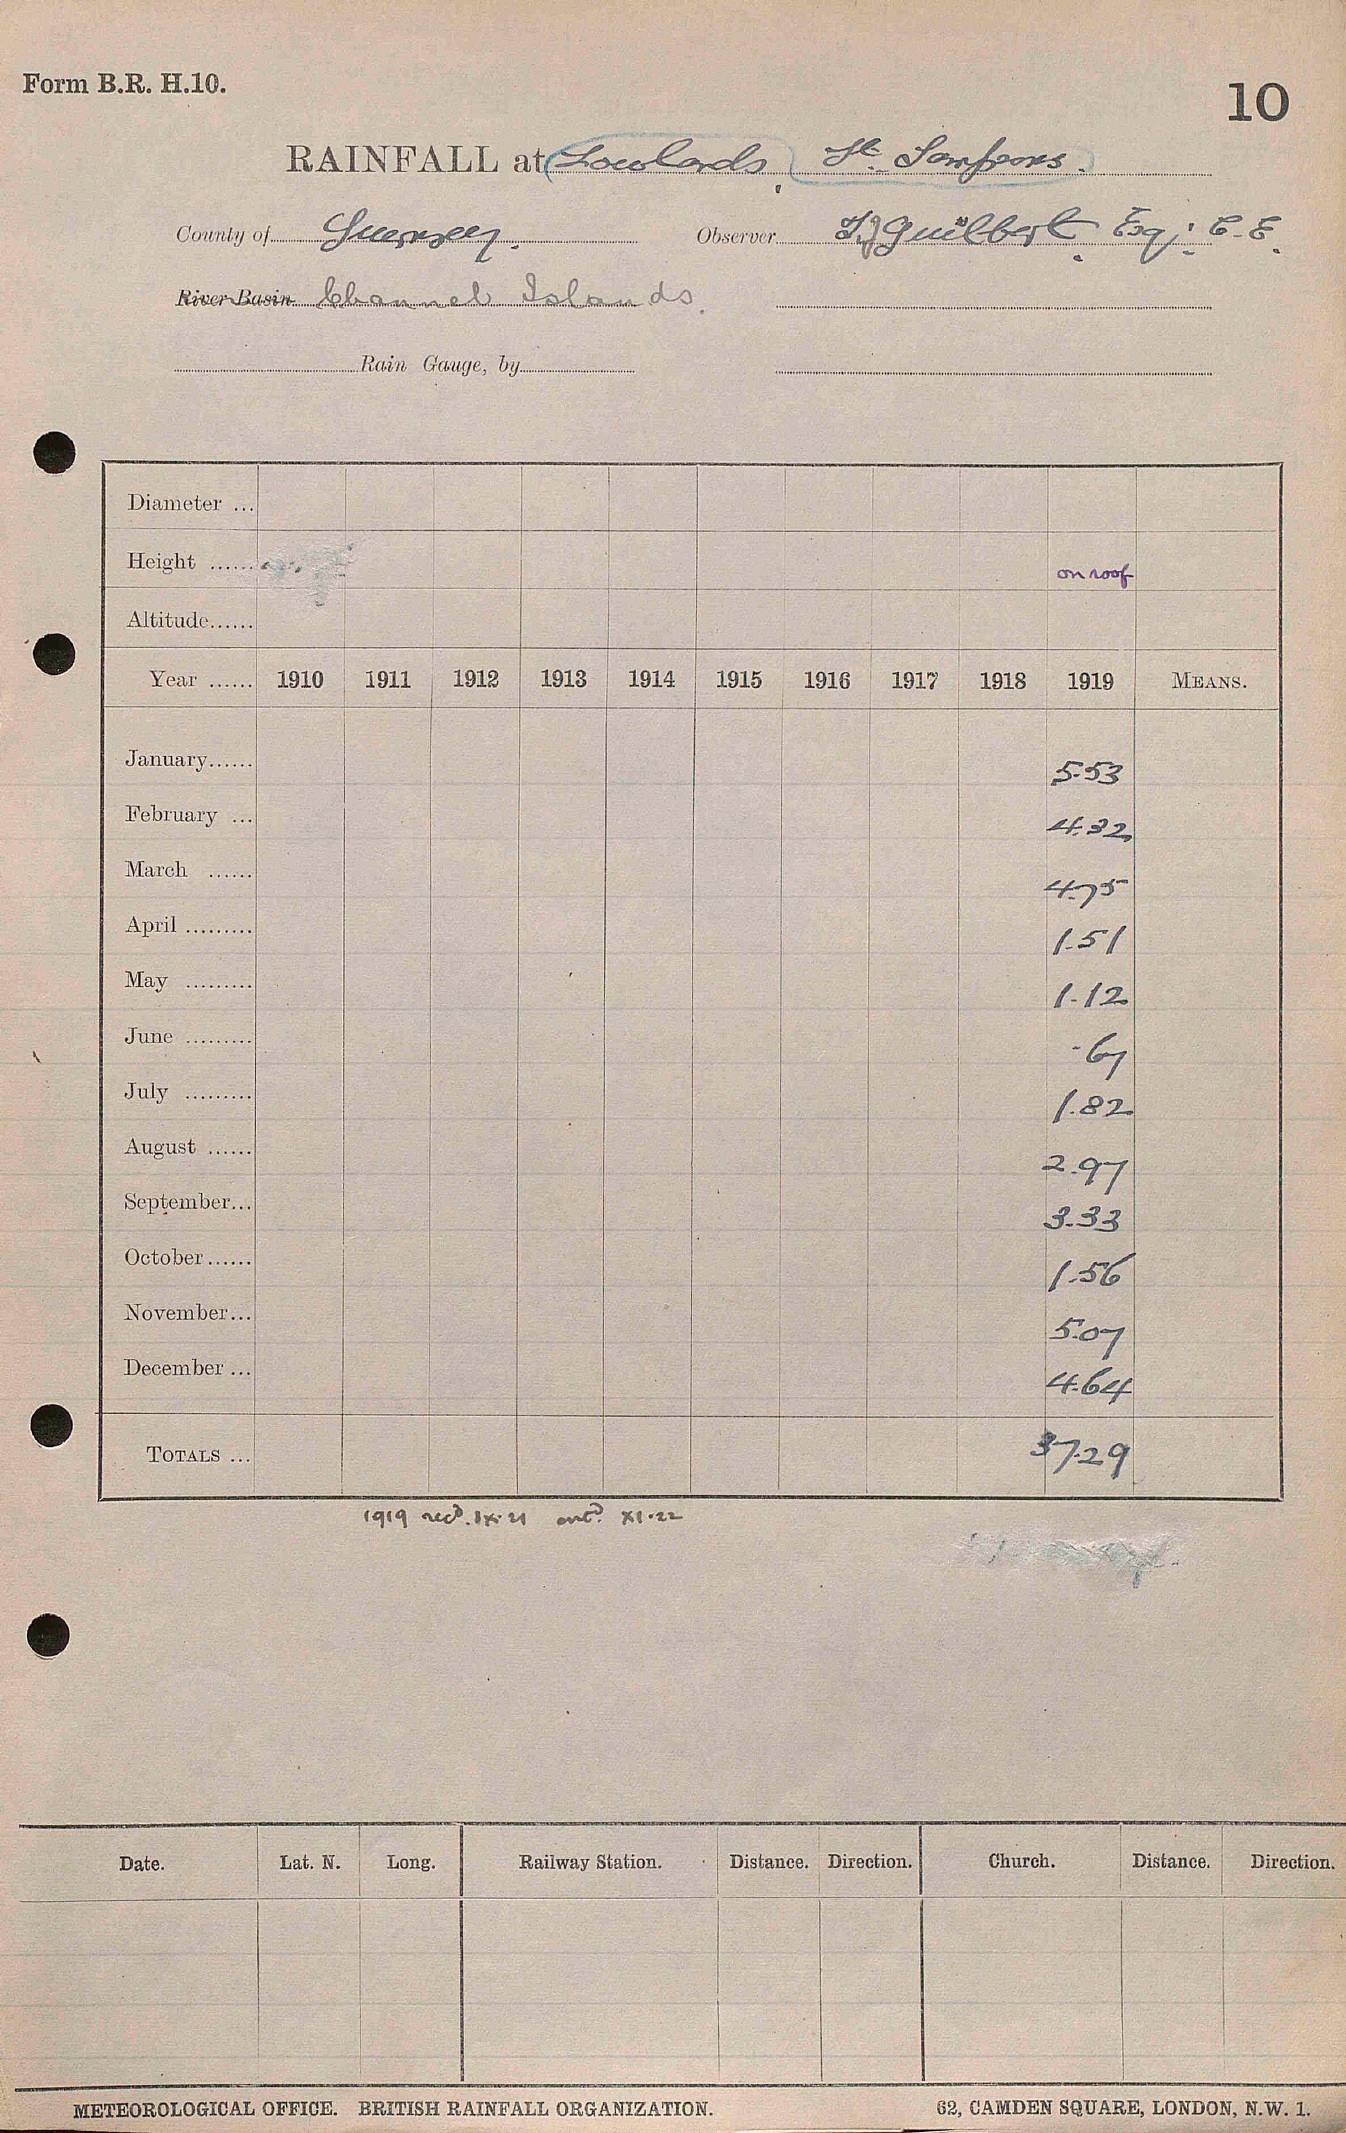 Form B.R. H.10.
10
RAINFALL at Lowlands, St. Sampsons.
County of Guernsey. Observer T.J Guilbert, Esq: C.E.
River Basin Channel Islands.
Rain Gauge, by
Diameter ...
Height ...... on roof
Altitude......
Year ...... 1910 1911 1912 1913 1914 1915 1916 1917 1918 1919 MEANS.
January...... 5.53
February ... 4.32
March ...... 4.75
April ......... 1.51
May ......... 1.12
June ......... .67
July ......... 1.82
August ...... 2.97
September... 3.33
October...... 1.56
November... 5.07
December ... 4.64
TOTALS ... 37.29
1919 recd. IX.21 entd. XI.22
Date. Lat. N. Long. Railway Station. Distance. Direction. Church. Distance. Direction.
METEOROLOGICAL OFFICE. BRITISH RAINFALL ORGANIZATION. 62, CAMDEN SQUARE, LONDON, N.W. 1.